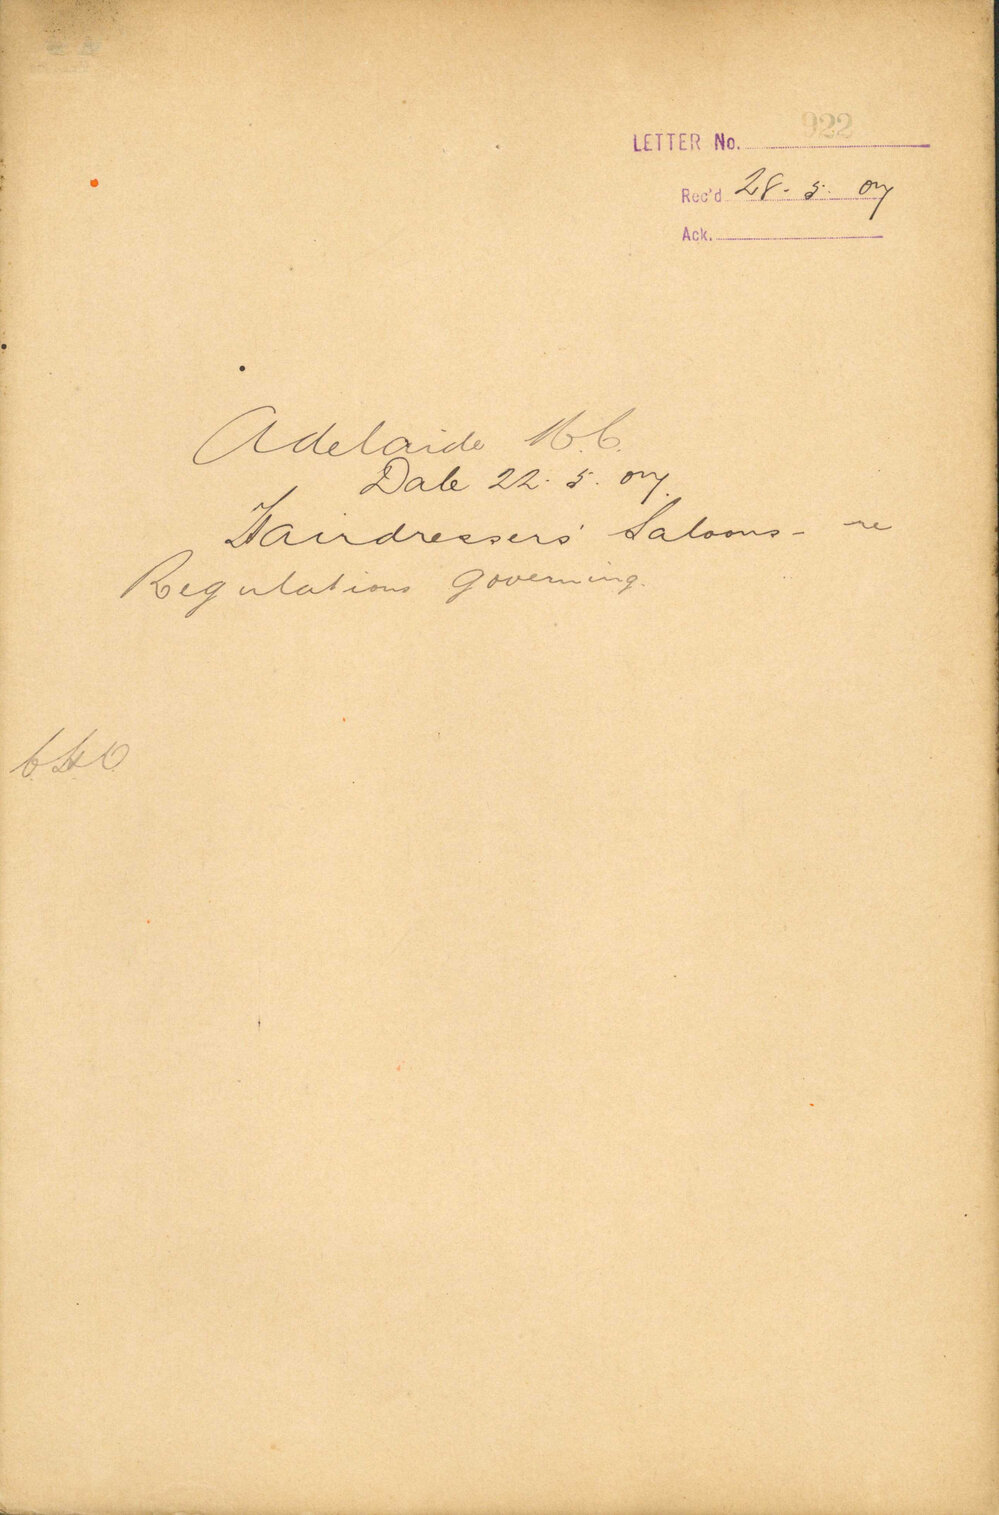 LETTER No. 922
Rec'd 28. 5. 07
Ack.
Adelaide M.C.
Date 22. 5. 07.
Hairdressers' Saloons - re
Regulations governing.
C.H.O